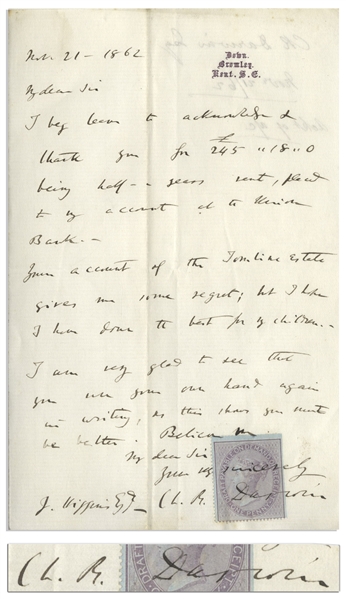 Down.
Bromley.
Kent. S. E.
Nov. 21 - 1862
My dear Sir
I beg leave to acknowledge &
thank you for £245 "18" 0
being half-a years rent, placed
to my account at the Union
Bank. -
Your account of the Tomline Estate
gives me some regret; but I hope
I have done the best for my children. -
I am very glad to see that
you use your own hand again
in writing, as this shows you must
be better. Believe me
My dear Sir
Yours very sincerely
J. Higgins Esq Ch. R. Darwin
Ch. R. Darwin